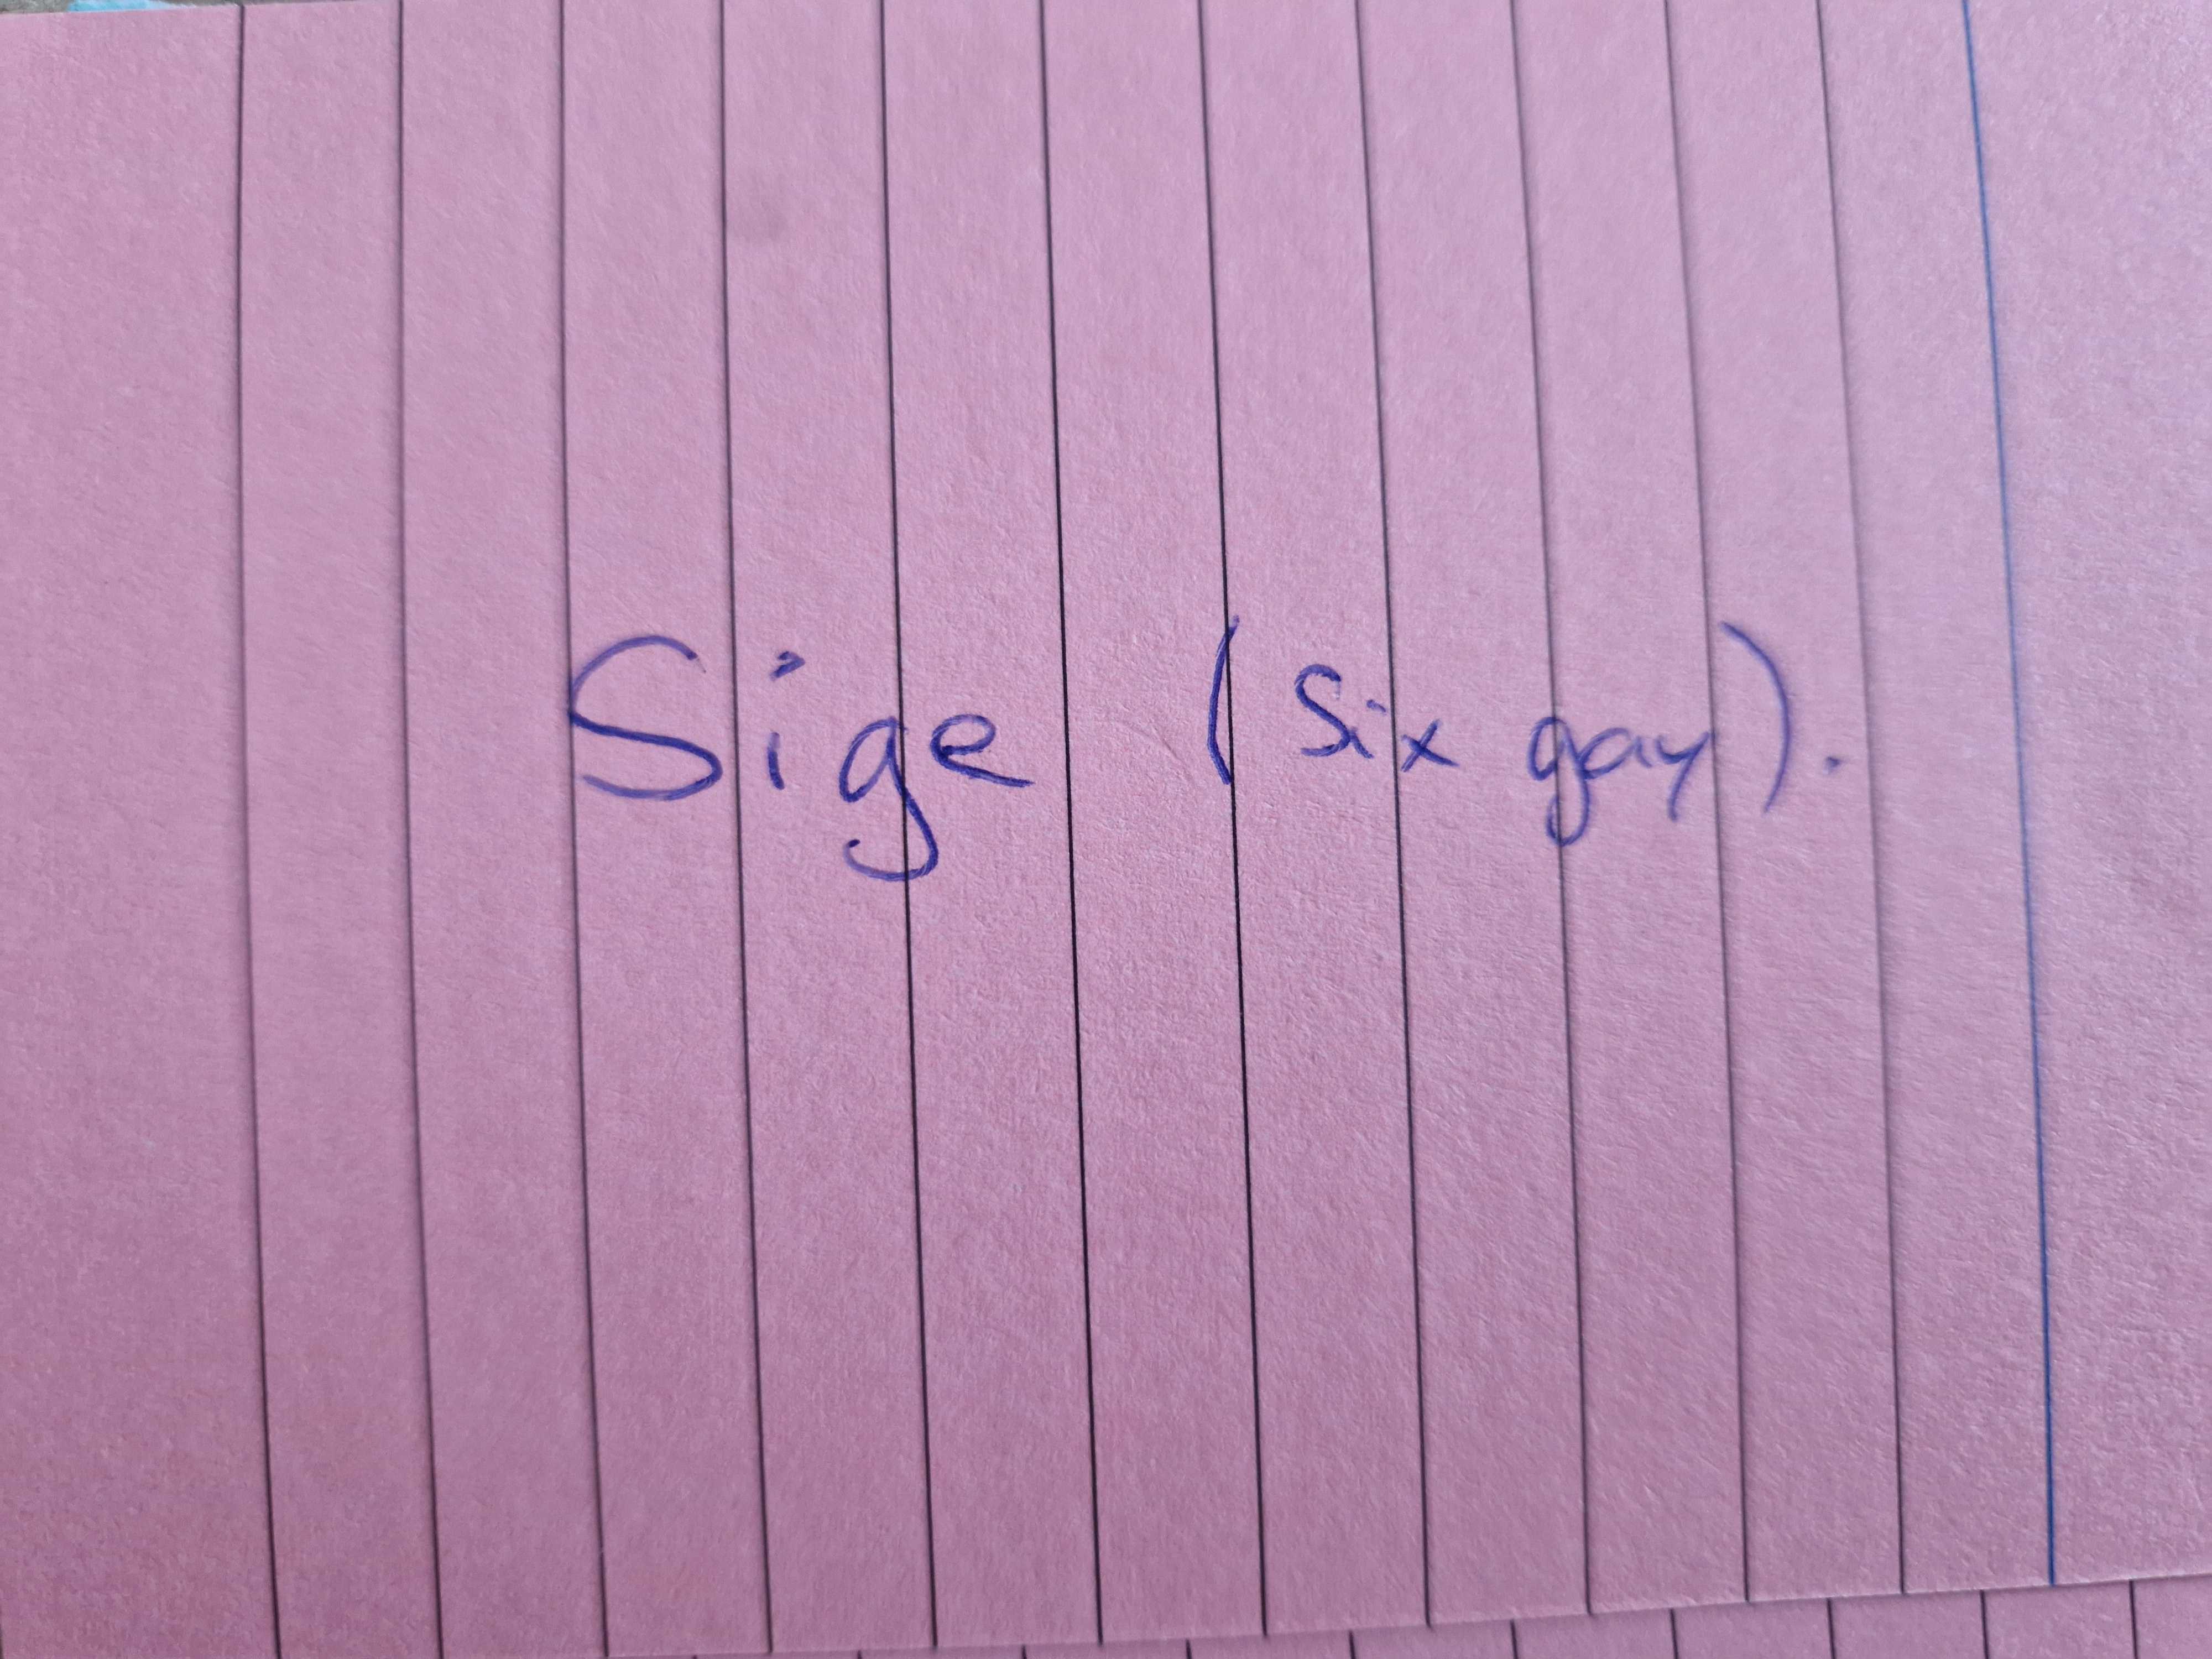 Sige (Six gay).